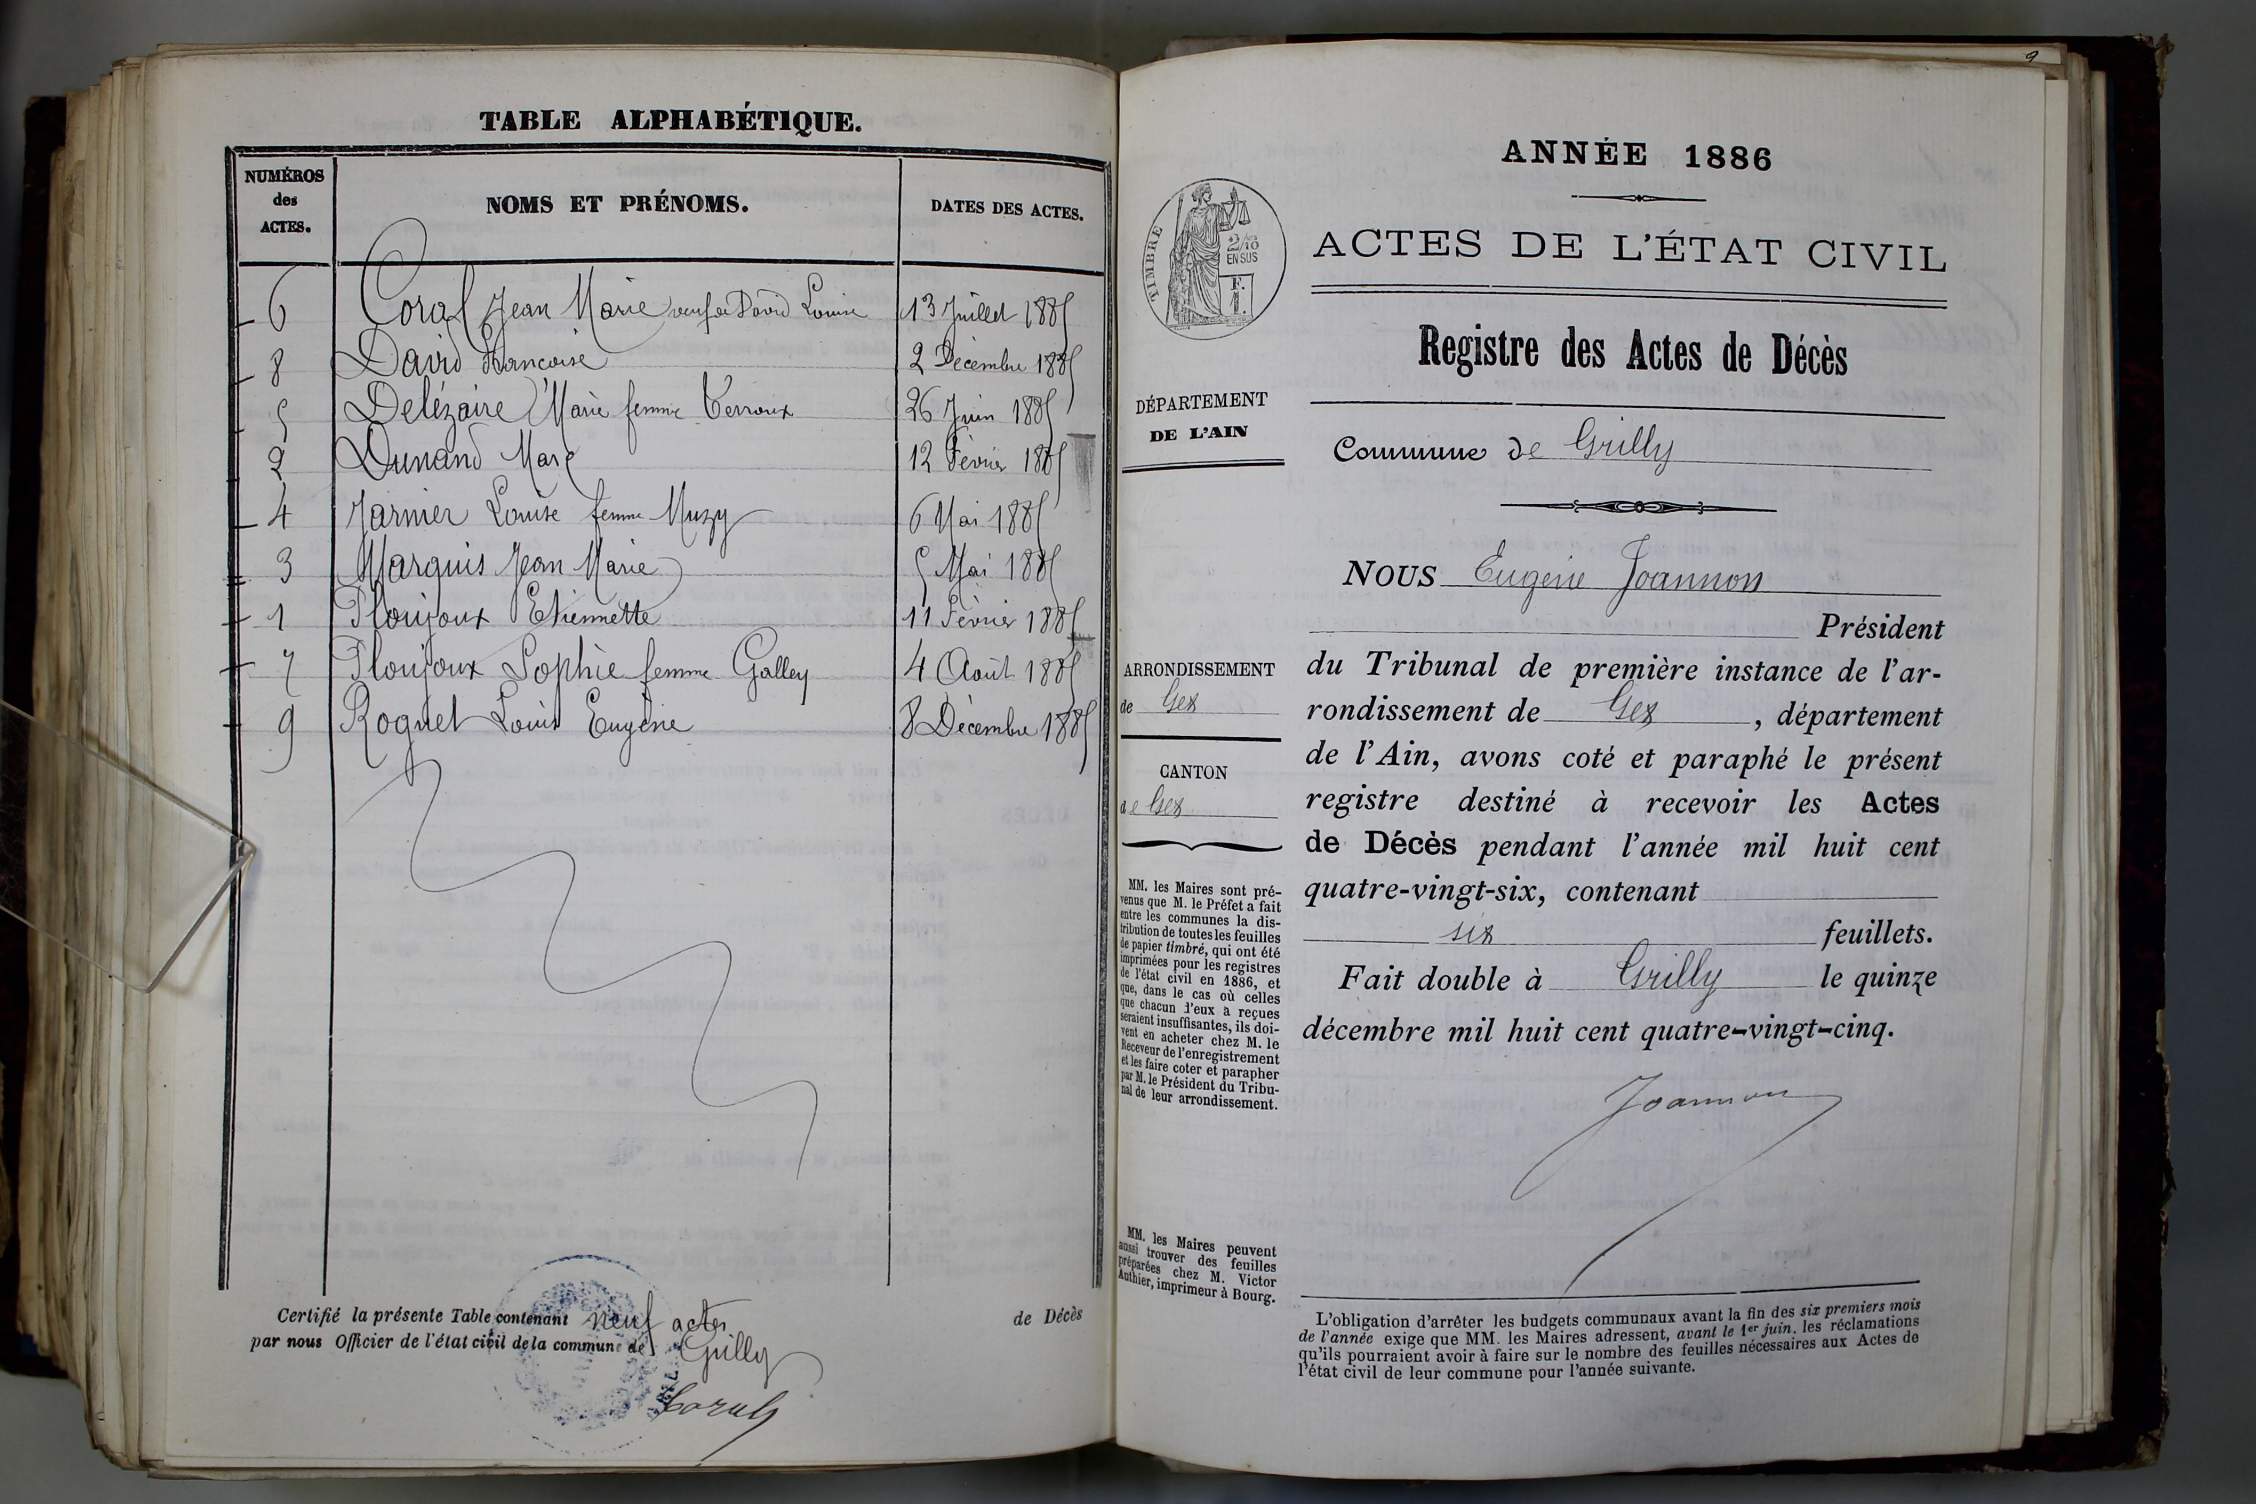 TABLE ALPHABÉTIQUE.
NUMÉROS
des
ACTES.
NOMS ET PRÉNOMS.
DATES DES ACTES.
6 Coral Jean Marie veuf de David Louise 13 Juillet 1885
8 David Francoise 2 Décembre 1885
5 Delézaire Marie femme Verroux 26 Juin 1885
2 Dunand Marc 12 Février 1885
4 Jarnier Louise femme Muzy 6 Mai 1885
3 Marquis Jean Marie 5 Mai 1885
1 Ploujoux Etiennette 11 Février 1885
7 Ploujoux Sophie femme Galley 4 Août 1885
9 Roquet Louis Eugène 8 Décembre 1885
Certifié la présente Table contenant neuf actes de Décès
par nous Officier de l'état civil de la commune de Grilly
9
ANNÉE 1886
TIMBRE
2/10
EN SUS
F.
1.
ACTES DE L'ÉTAT CIVIL
Registre des Actes de Décès
DÉPARTEMENT
DE L'AIN
Commune de Grilly
NOUS Eugène Joannon
Président
du Tribunal de première instance de l'ar-
rondissement de Gex, département
de l'Ain, avons coté et paraphé le présent
registre destiné à recevoir les Actes
de Décès pendant l'année mil huit cent
quatre-vingt-six, contenant
six feuillets.
Fait double à Grilly le quinze
décembre mil huit cent quatre-vingt-cinq.
Joannon
ARRONDISSEMENT
de Gex
CANTON
de Gex
MM. les Maires sont pré-
venus que M. le Préfet a fait
entre les communes la dis-
tribution de toutes les feuilles
de papier timbré, qui ont été
imprimées pour les registres
de l'état civil en 1886, et
que, dans le cas où celles
que chacun d'eux a reçues
seraient insuffisantes, ils doi-
vent en acheter chez M. le
Receveur de l'enregistrement
et les faire coter et parapher
par M. le Président du Tribu-
nal de leur arrondissement.
MM. les Maires peuvent
aussi trouver des feuilles
préparées chez M. Victor
Authier, imprimeur à Bourg.
L'obligation d'arrêter les budgets communaux avant la fin des six premiers mois
de l'année exige que MM. les Maires adressent, avant le 1er juin, les réclamations
qu'ils pourraient avoir à faire sur le nombre des feuilles nécessaires aux Actes de
l'état civil de leur commune pour l'année suivante.